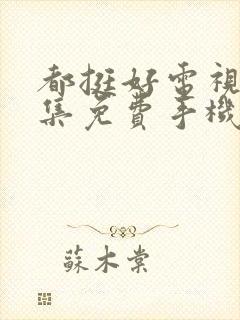 都挺好電視
集免費手機
蘇木棠